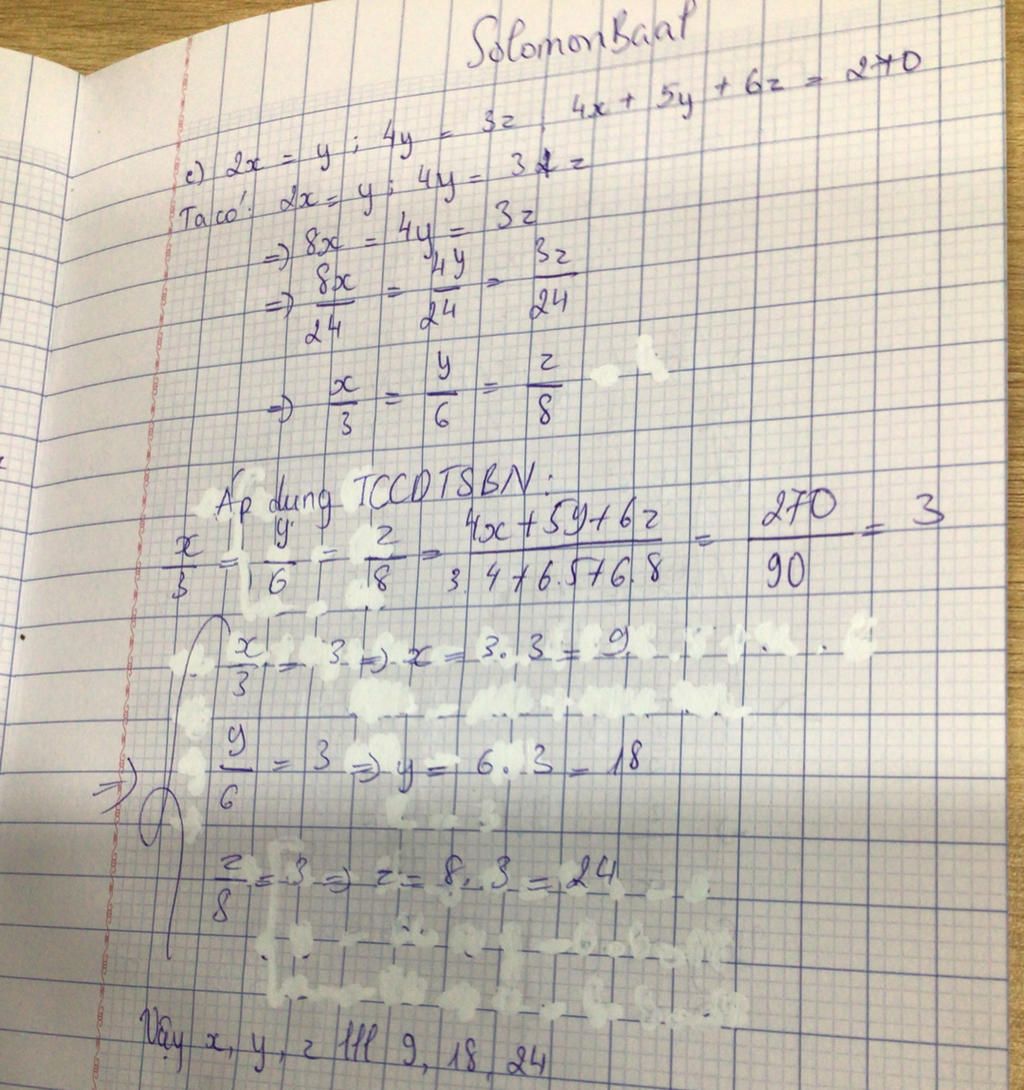 SolomonBaal
c) 2x = y ; 4y = 3z , 4x + 5y + 6z = 270
Ta có: 2x = y ; 4y = 3z
=> 8x = 4y = 3z
=> 8x/24 = 4y/24 = 3z/24
=> x/3 = y/6 = z/8
Áp dụng TCCDTSBN:
x/3 = y/6 = z/8 = 4x+5y+6z/3.4+6.5+6.8 = 270/90 = 3
x/3 = 3 => x = 3.3 = 9
=> y/6 = 3 => y = 6.3 = 18
z/8 = 3 => z = 8.3 = 24
Vậy x, y, z lll 9, 18, 24